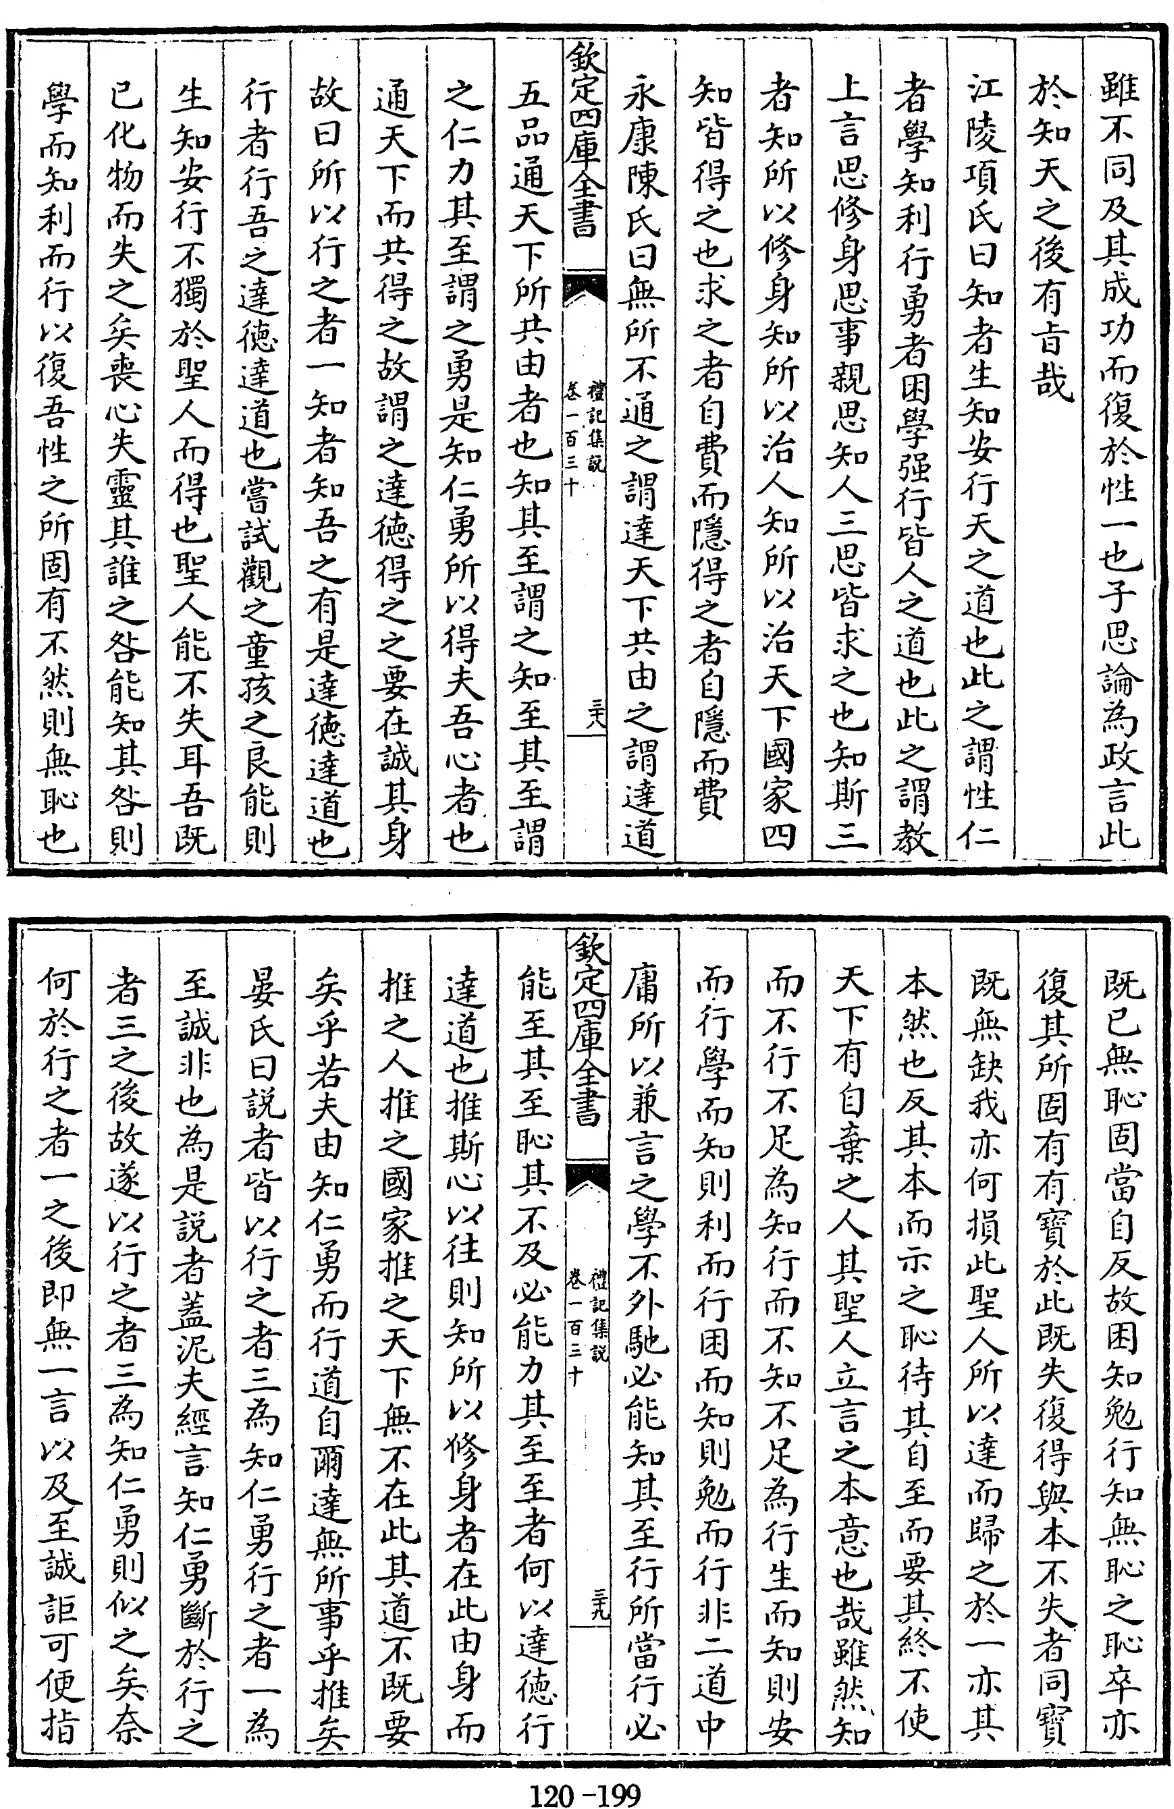 雖不同及其成功而復於性一也子思論為政言此
於知天之後有旨哉
江陵項氏曰知者生知安行天之道也此之謂性仁
者學知利行勇者困學强行皆人之道也此之謂教
上言思修身思事親思知人三思皆求之也知斯三
者知所以修身知所以治人知所以治天下國家四
知皆得之也求之者自費而隱得之者自隱而費
永康陳氏曰無所不通之謂達天下共由之謂達道
欽定四庫全書
禮記集說
卷一百三十
三十八
五品通天下所共由者也知其至謂之知至其至謂
之仁力其至謂之勇是知仁勇所以得夫吾心者也
通天下而共得之故謂之達德得之之要在誠其身
故曰所以行之者一知者知吾之有是達德達道也
行者行吾之達德達道也嘗試觀之童孩之良能則
生知安行不獨於聖人而得也聖人能不失耳吾既
已化物而失之矣喪心失靈其誰之咎能知其咎則
學而知利而行以復吾性之所固有不然則無恥也
既已無恥固當自反故困知勉行知無恥之恥卒亦
復其所固有有寶於此既失復得與本不失者同寶
既無缺我亦何損此聖人所以達而歸之於一亦其
本然也反其本而示之恥待其自至而要其終不使
天下有自棄之人其聖人立言之本意也哉雖然知
而不行不足為知行而不知不足為行生而知則安
而行學而知則利而行困而知則勉而行非二道中
庸所以兼言之學不外馳必能知其至行所當行必
欽定四庫全書
禮記集說
卷一百三十
三十九
能至其至恥其不及必能力其至至者何以達德行
達道也推斯心以往則知所以修身者在此由身而
推之人推之國家推之天下無不在此其道不既要
矣乎若夫由知仁勇而行道自爾達無所事乎推矣
晏氏曰説者皆以行之者三為知仁勇行之者一為
至誠非也為是説者蓋泥夫經言知仁勇斷於行之
者三之後故遂以行之者三為知仁勇則似之矣奈
何於行之者一之後即無一言以及至誠詎可便指
120-199